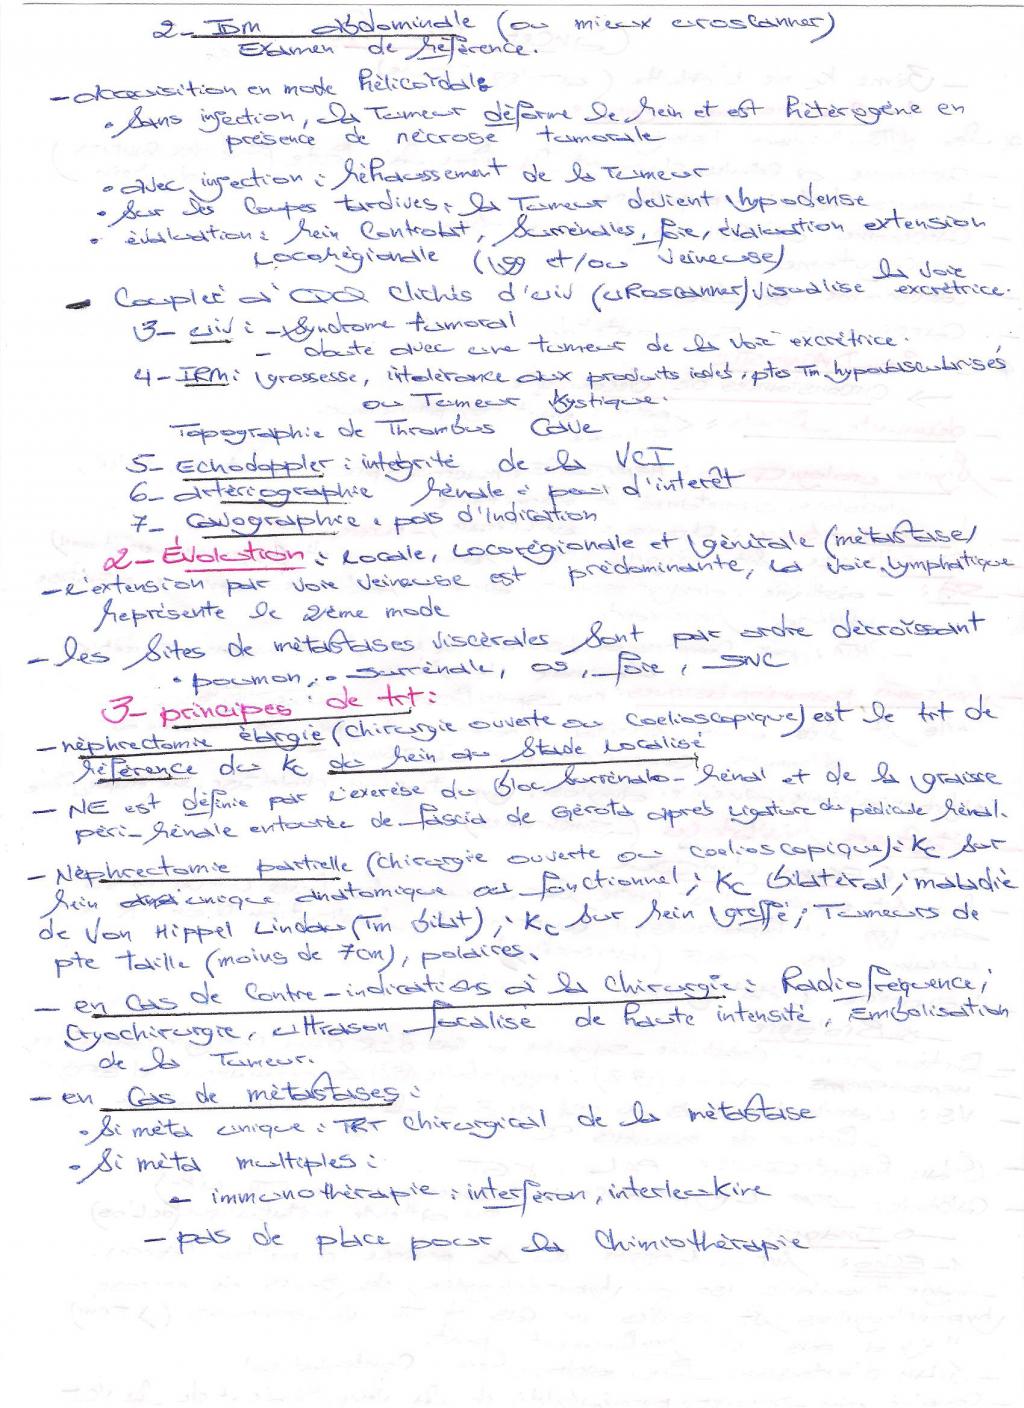 2- TDM abdominale (ou mieux uroscanner)
Examen de référence.
- Acquisition en mode hélicoïdale
• Sans injection, la Tumeur déforme le rein et est hétérogène en
présence de nécrose tumorale
• avec injection : réhaussement de la Tumeur
• Sur les Coupes tardives : la Tumeur devient hypodense
• évaluation : rein Controlat, Surrénales, foie, évaluation extension
Locorégionale (gg et/ou veineuse)
- Couplet à qq Clichés d'uiv (uRoscanner) visualise la voie
excrétrice.
3- uiv : - Syndrome tumoral
- doute avec une tumeur de la voie excrétrice.
4- IRM : grossesse, intolérance aux produits iodés, ptes Tm hypovascularisés
ou Tumeur Kystique.
Topographie de Thrombus Cave
5- Echodoppler : intégrité de la VCI
6- Artériographie rénale : peu d'interêt
7- Cavographie : pas d'Indication
2- Évolution : Locale, Locorégionale et générale (métastase)
- L'extension par voie veineuse est prédominante, la voie lymphatique
représente le 2ème mode
- les Sites de métastases viscérales Sont par ordre décroissant
• poumon, • surrénale, os, foie, SNC
3- principes de trt :
- néphrectomie élargie (Chirurgie ouverte ou coelioscopique) est le trt de
référence du Kc du rein au Stade Localisé
- NE est définie par l'exérèse du Bloc Surrénalo-rénal et de la graisse
péri-rénale entourée de fascia de Gérota après Ligature du pédicule rénal.
- Néphrectomie partielle (Chirurgie ouverte ou coelioscopique) : Kc Sur
rein unique anatomique ou fonctionnel ; Kc bilatéral ; maladie
de Von Hippel Lindau (Tm bilat) ; Kc Sur rein greffé ; Tumeurs de
pte Taille (moins de 7cm), polaires.
- en Cas de Contre-indications à la Chirurgie : Radiofréquence ;
Cryochirurgie, ultrason focalisé de haute intensité, Embolisation
de la Tumeur.
- en Cas de métastases :
• Si méta unique : TRT Chirurgical de la métastase
• Si méta multiples :
- immunothérapie : interféron, interleukine
- pas de place pour la Chimiothérapie